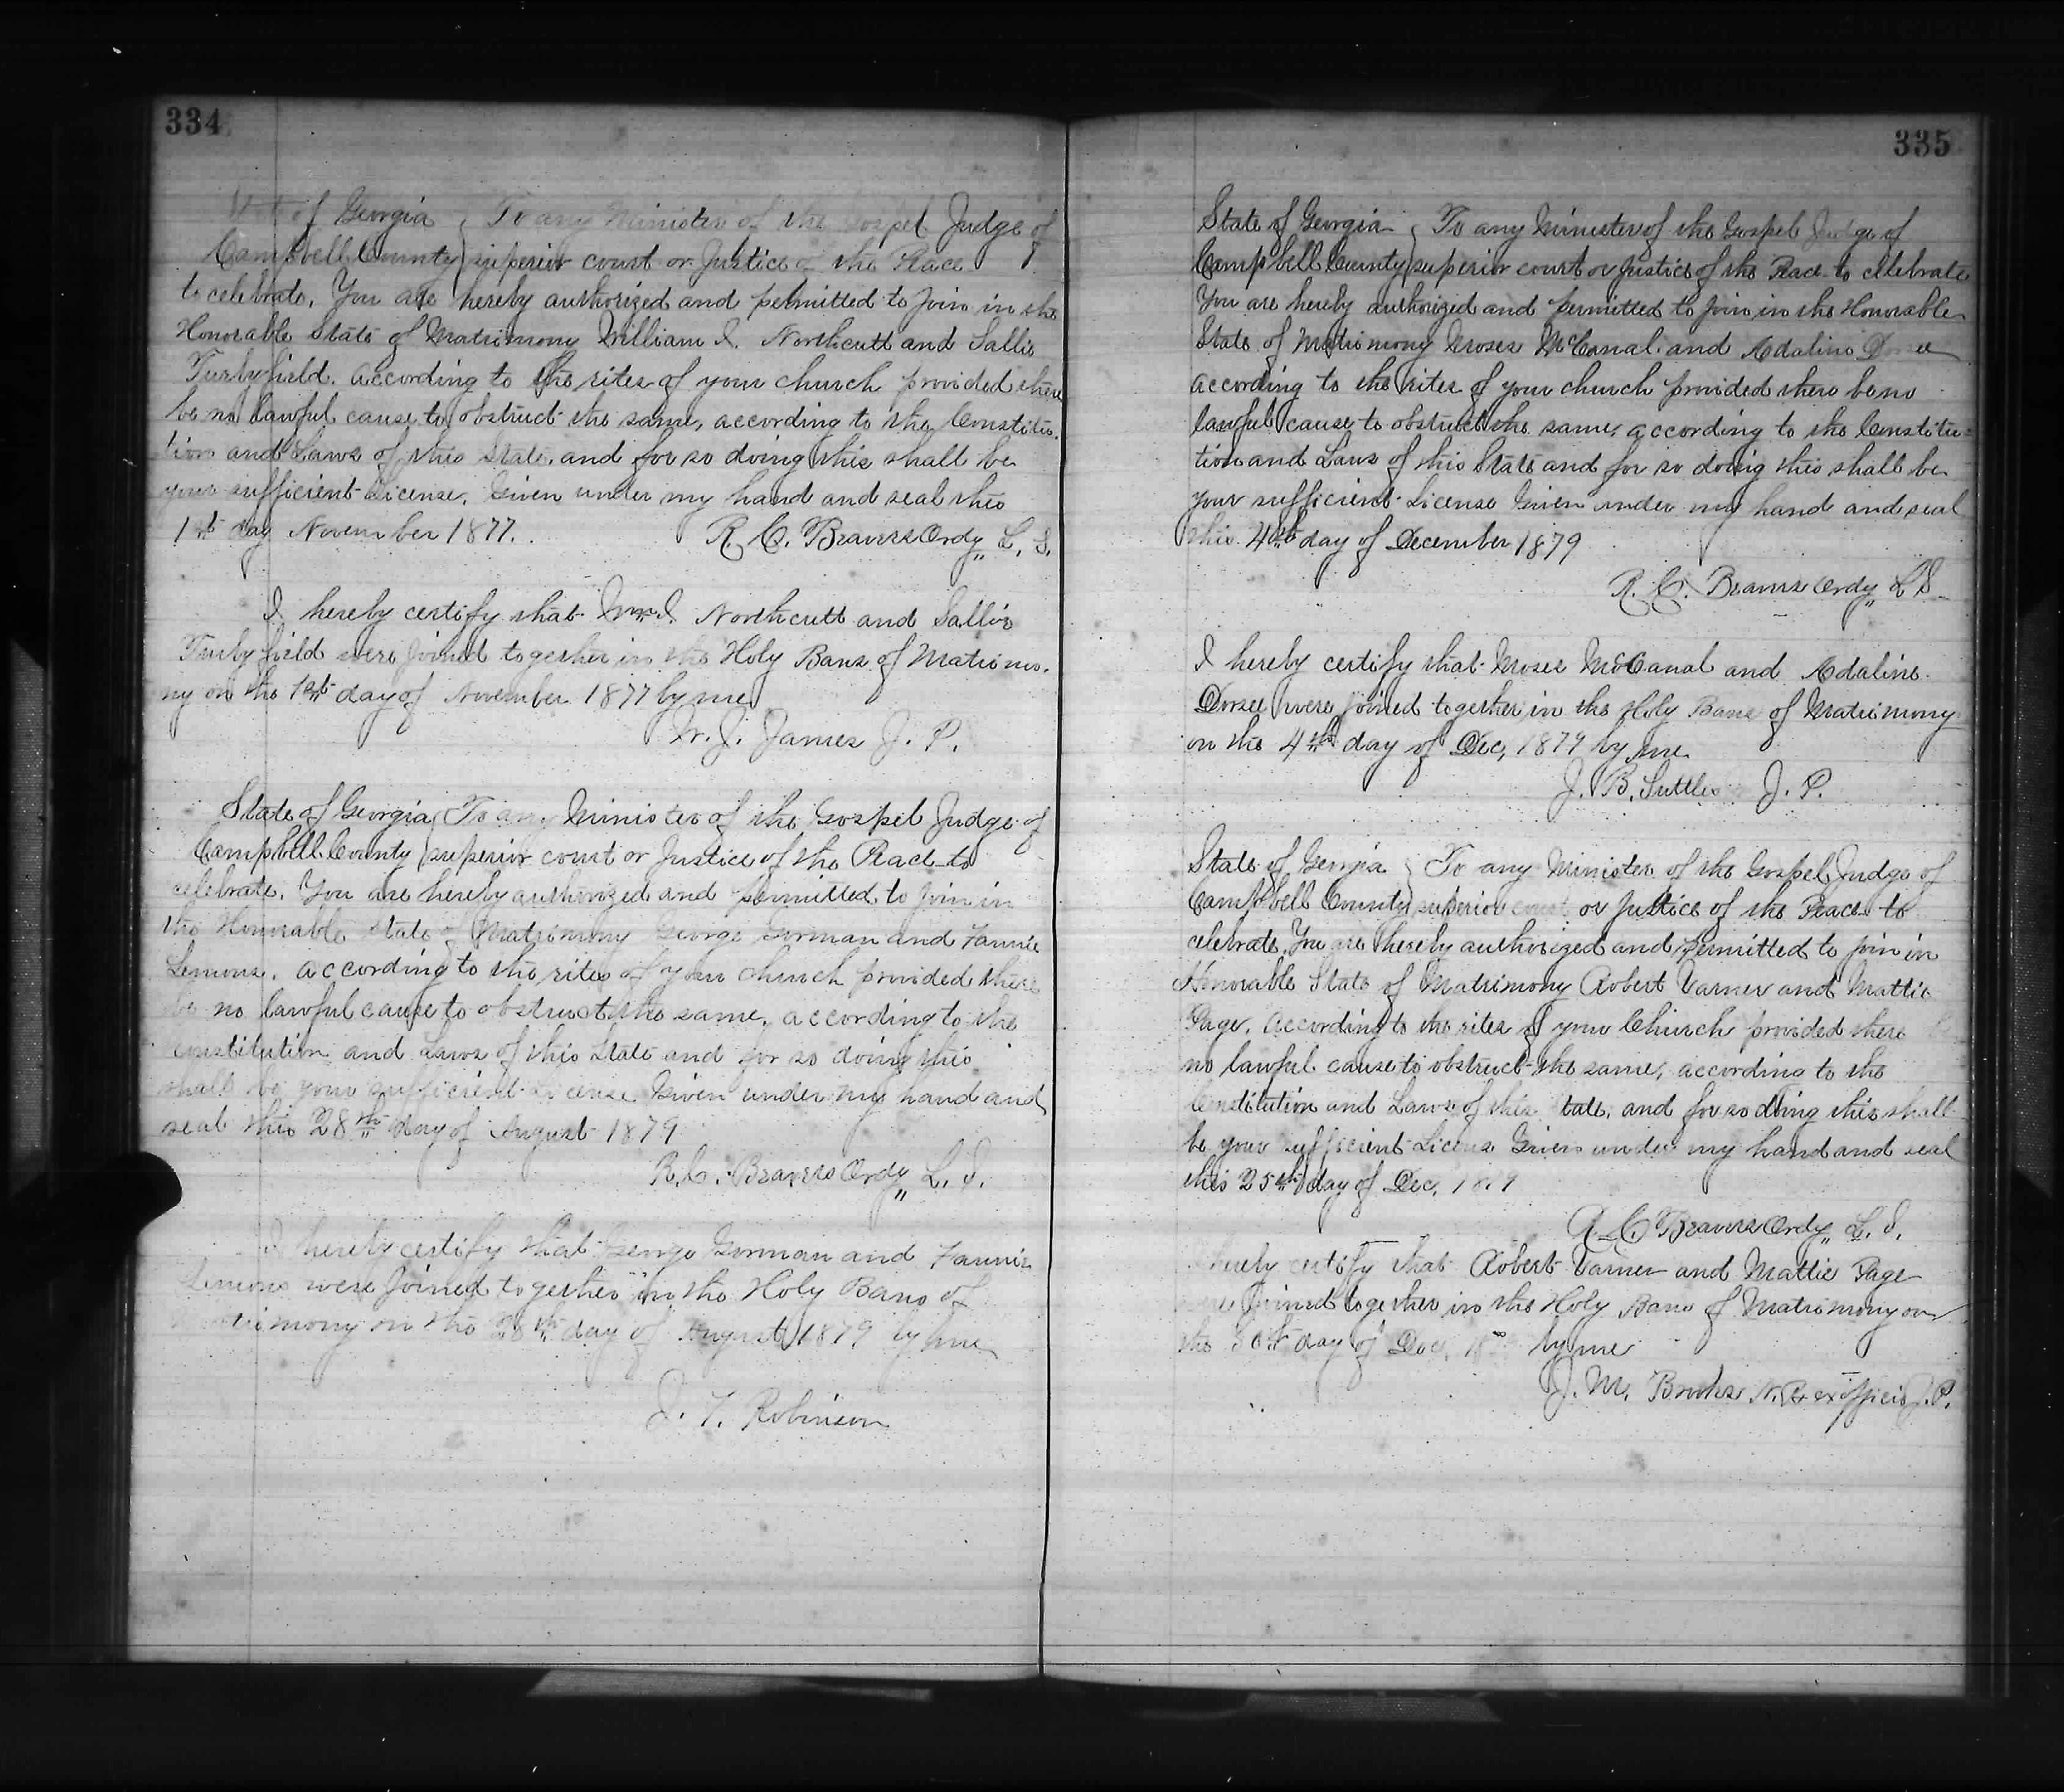 334
of Georgia To any Minister of the Gospel Judge of
Campbell County superior court or Justice of the Peace
to celebrate. You are hereby authorized and permitted to join in the
Honorable State of Matrimony William I. Northcutt and Sallie
Turbyfield. according to the rites of your church provided there
be no lawful cause to obstruct the same, according to the Constitu-
tion and Laws of this State, and for so doing this shall be
your sufficient License. Given under my hand and seal this
1st day November 1877. R. C. Beavers Ordy L. S.
I hereby certify that Wm I Northcutt and Sallie
Turbyfield were joined together in the Holy Bans of Matrimo-
ny on the 1st day of November 1877 by me
W. J. James J. P.
State of Georgia To any Minister of the Gospel Judge of
Campbell County superior court or Justice of the Peace to
celebrate. You are hereby authorized and permitted to join in
the Honorable State of Matrimony George Gorman and Fannie
Lemons. according to the rites of your church provided there
be no lawful cause to obstruct the same. according to the
constitution and Laws of this State and for so doing this
shall be your sufficient License Given under my hand and
seal this 28th day of August 1879
R. C. Beavers Ordy L. S.
I hereby certify that George Gorman and Fannie
Lemons were joined together in the Holy Bans of
Matrimony on the 28th day of August 1879 by me
J. T. Robinson
335
State of Georgia To any Minister of the Gospel Judge of
Campbell County superior court or Justice of the Peace to celebrate
You are hereby authorized and permitted to join in the Honorable
State of Matrimony Moses McCanal and Adaline Dorsee
according to the rites of your church provided there be no
lawful cause to obstruct the same, according to the Constitu-
tion and Laws of this State and for so doing this shall be
your sufficient License Given under my hand and seal
this 4th day of December 1879
R. C. Beavers Ordy L S
I hereby certify that Moses McCanal and Adaline
Dorsee were joined together in the Holy Bans of Matrimony
on the 4th day of Dec, 1879 by me
J. B. Suttles J. P.
State of Georgia To any Minister of the Gospel Judge of
Campbell County superior court or Justice of the Peace to
celebrate. You are hereby authorized and permitted to join in
Honorable State of Matrimony Robert Varner and Mattie
Page. according to the rites of your Church provided there be
no lawful cause to obstruct the same, according to the
Constitution and Laws of this State, and for so doing this shall
be your sufficient License Given under my hand and seal
this 25th day of Dec, 1879
R. C. Beavers Ordy L. S.
hereby certify that Robert Varner and Mattie Page
were joined together in the Holy Bans of Matrimony on
the 30th day of Dec, by me
J. M. Brooks N. P. & exofficio J. P.